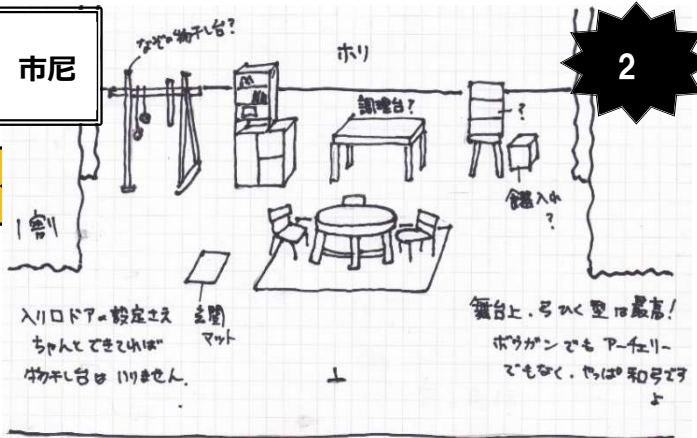 市尼
2
なぞの物干し台?
ホリ
調理台?
?
食器入れ
?
1割り
玄関
マット
入り口ドアの設定さえ
ちゃんとできてれば
物干し台はいりません.
舞台上.弓ひく型は最高!
ボウガンでもアーチェリー
でもなく.やっぱ和弓です
よ